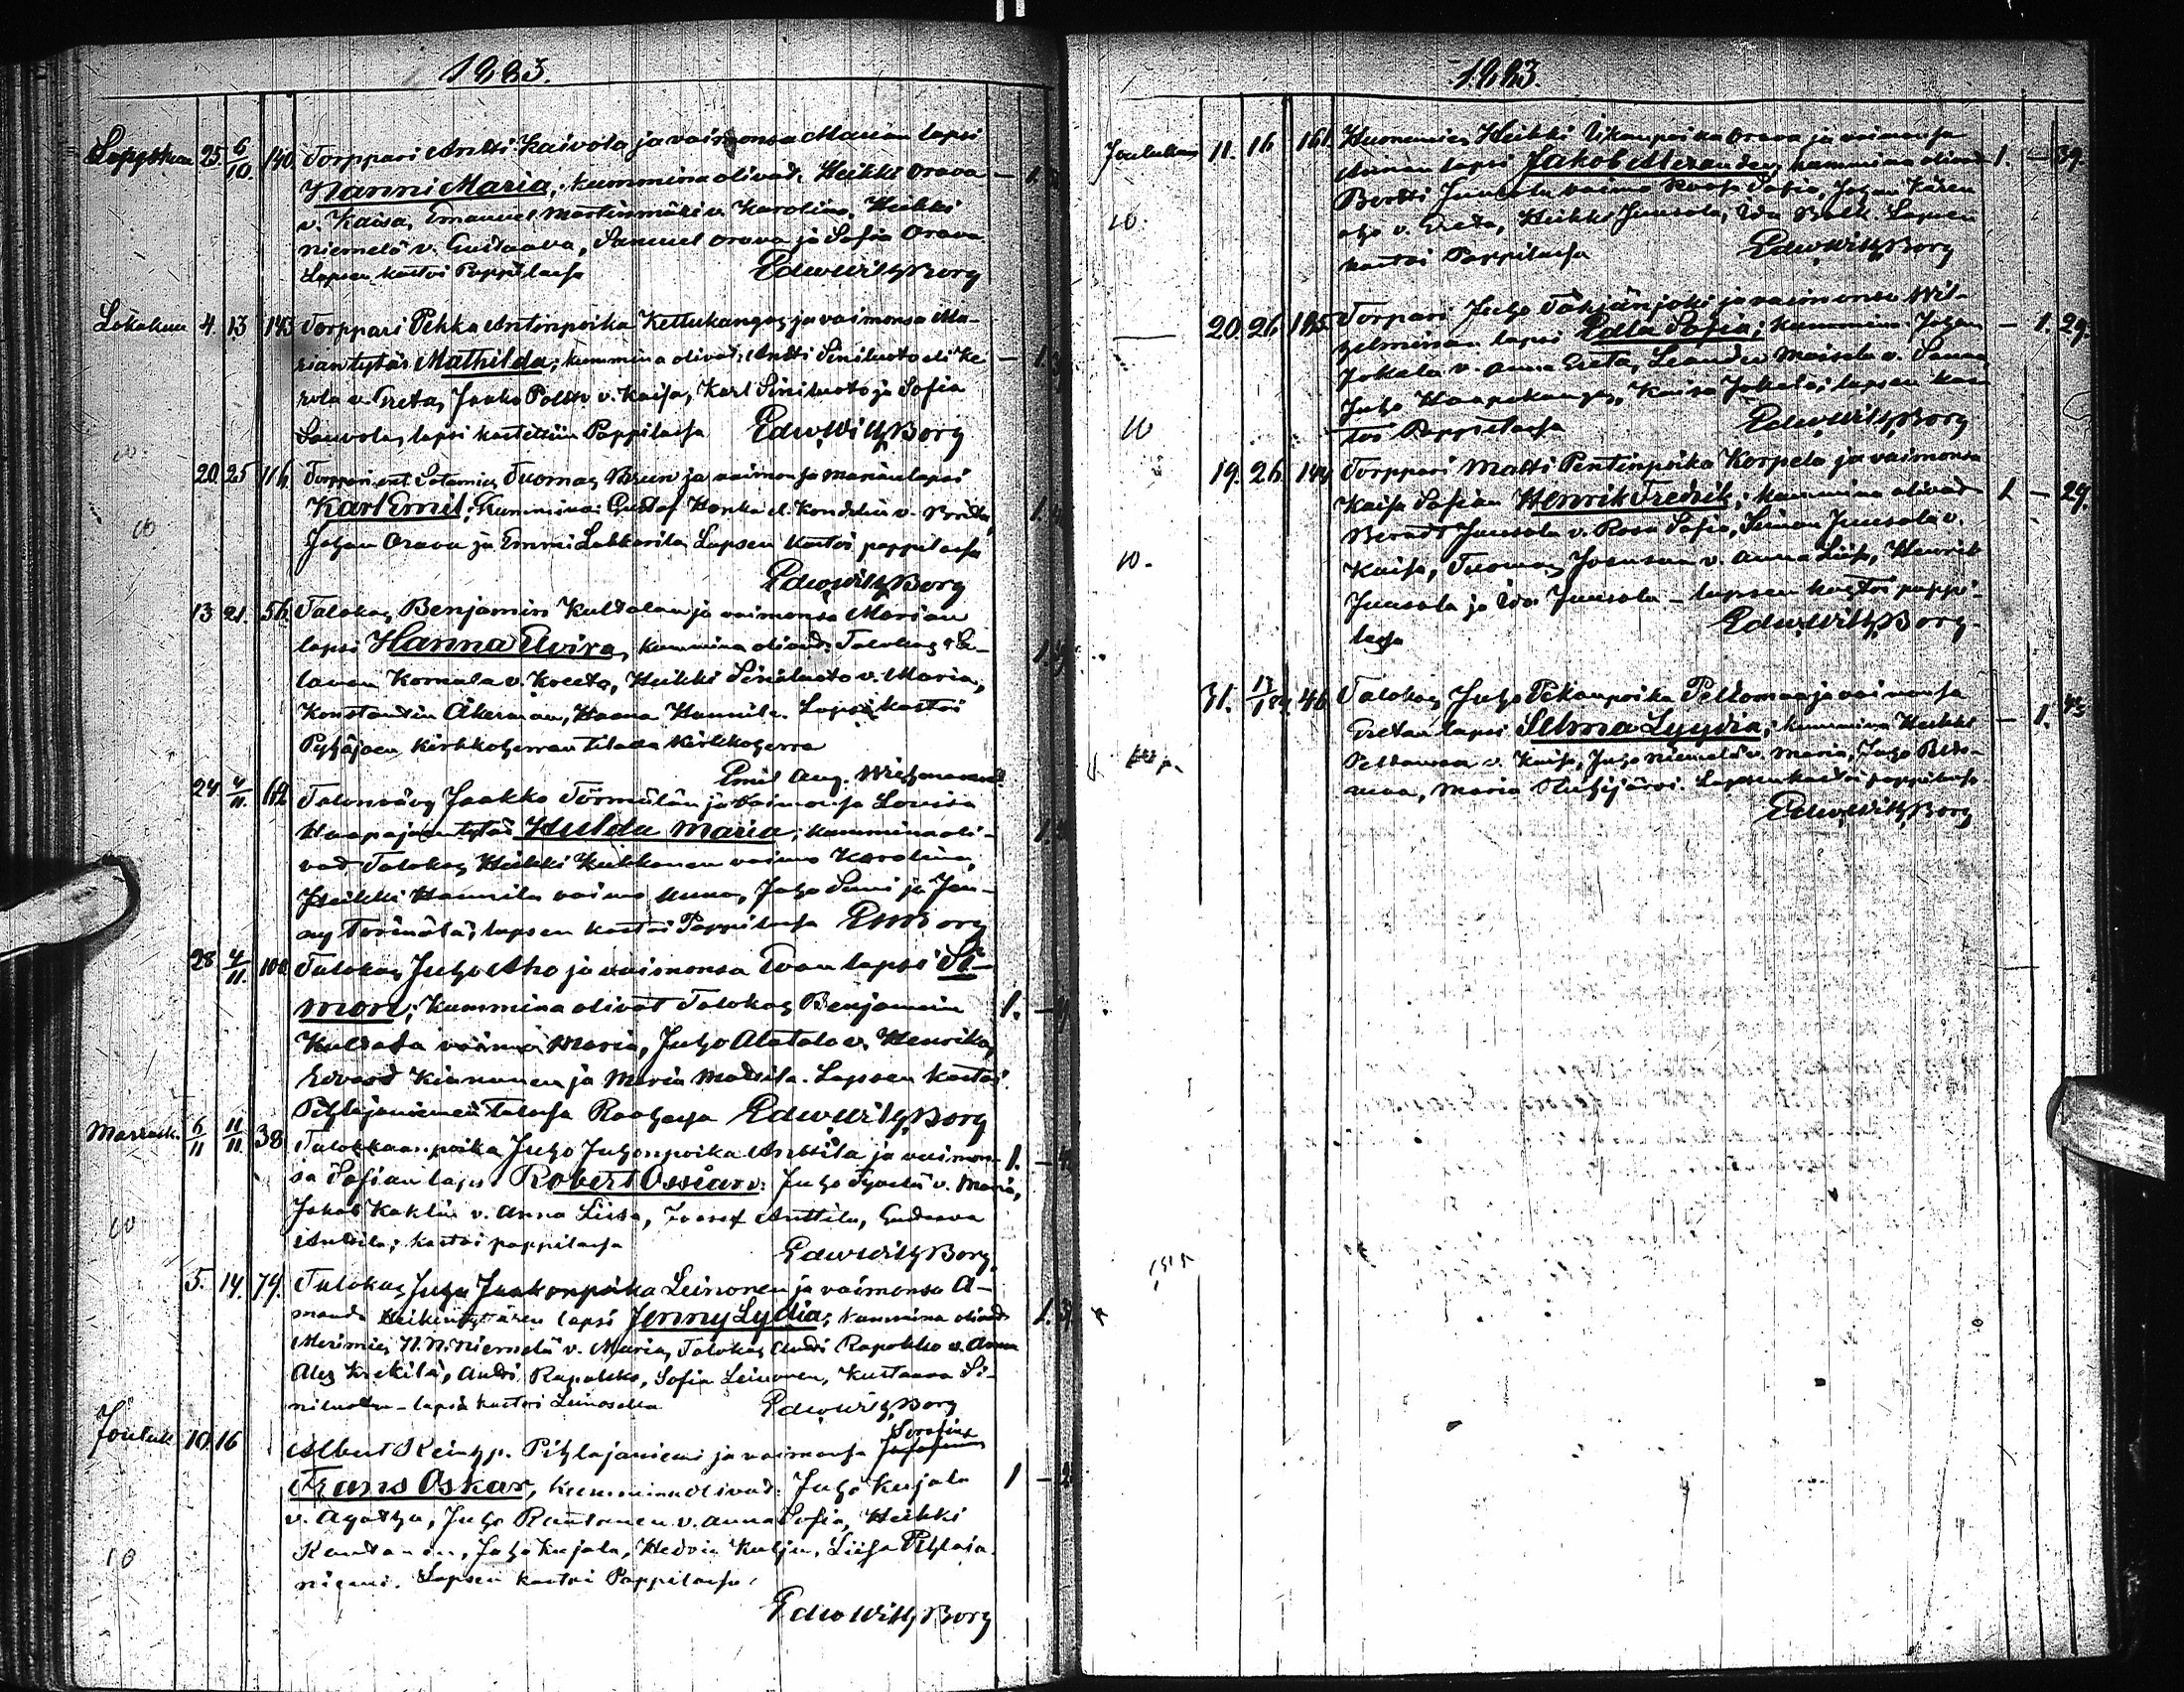 1883.
Syyskuu 25. 6/10 140. Torppari Antti Kaivola ja vaimonsa Marian lapsi
Nanni Maria; kummina olivat: Heikki Orava — 1.
v. Kaisa, Emanuel Martinmäki v. Karolina, Heikki
Niemelä v. Gustaava, Samuel Orava ja Sofia Orava
Lapsen kastoi Pappilassa Edw. Wilh. Borg
Lokakuu 4. 13 143 Torppari Pekka Antinpoika Kettukangas ja vaimonsa Ma-
rian tytär Mathilda; kummina olivat: Antti Siniluoto eli Ke — 1.
rola v. Greta, Jaako v. Kaisa, Karl Siniluoto ja Sofia
Sauvola, lapsi kastettiin Pappilassa Edw. Wilh. Borg
20. 25 116. Torppari ent. Sotamies Tuomas Brun ja vaimonsa Marian lapsi
Karl Emil; Kummina: Gustaf Honka el. v. 1.
Johan Orava ja Emmi Lapsen kastoi pappilassa
10
Edw. Wilh. Borg
13 21. 56. Talokas Benjamin Kultalan ja vaimonsa Marian
lapsi Hanna Elvira, kummina olivat: Talokas 1.
Kornala v. Kreeta, Heikki Siniluoto v. Maria,
Konstantin Åkerman, Hanna Hannila. Lapsi kastoi
Pyhäjoen kirkkoherran tilada kirkkoherra
Emil Aug.
24 4/11. 62 Talonvävy Jaakko Törmälän ja vaimonsa Lovisa
Haapajan tytär Hulda Maria; kummina oli- 1.
vad Talokas Heikki Heikkonen vaimo Karolina,
Heikki Hannila vaimo Anna, Juho ja Jen-
ny Törmälä; lapsen kastoi Pappilassa EWBorg
28 4/11. 100. Talokas Juho Aho ja vaimonsa lapsi Si-
mon; Kummina olivat Talokas Benjamin 1. —
Kultala vaimo Maria, Juho Alatalo v. Henrika,
Edvard Kinnunen ja Maria Mattila. Lapsen kastoi
Pihlajaniemen talossa Raahessa Edw. Wilh. Borg
Marrask. 6/11 11/11. 38 Talokkaanpoika Juho Juhonpoika Anttila ja vaimon- 1. —
sa Sofian lapsi Robert Ossian: Juho v. Maria,
Jakob v. Anna Liisa, Josef Anttila, Gustaava
10
Anttila; kastoi pappilassa Edw. Wilh. Borg.
5. 14. 79. Talokas Juho Jaakonpoika Leinonen ja vaimonsa A-
manda Heikintyttären lapsi Jenny Lydia; kummina olivat 1.
Merimies H. N. Niemelä v. Maria, Talokas Antti Rapakko v. Anna
Alex Krekilä, Antti Rapakko, Sofia Leinonen, Kustaava Si-
niluoto - lapsen kastoi Leinosella Edw. Wilh. Borg
Jouluk. 10. 16 Albert Reinh. p. Pihlajaniemi ja vaimonsa Serafina
Frans Oskar, kummina olivad: Juho Kujala 1 —
v. Agatha, Juho Rantanen v. Anna Sofia, Heikki
Rantanen, Juho Kujala, Hedvig Kulju, Liisa Pihlaja-
10
niemi. Lapsen kastoi Pappilassa
Edw. Wilh. Borg
1883.
Joulukuu 11. 16 161 Huonemies Heikki Iikanpoika Orava ja vaimonsa
Annan lapsi Jakob Alexander, kummina olivat 1. — 39.
Bertti Juusola vaimo Roosa Sofia, Johan
10.
v. Greta, Heikki Juusola, Ida. Lapsen
kastoi Pappilassa Edw. Wilh. Borg
— 20. 26 185 Torpari Juho Tähjänjoki ja vaimonsa Wil-
helminan lapsi Edla Sofia; kummina: Johan — 1. 29.
Jokela v. Anna Greta, Leander v. Sanna,
Juho Haapakangas, Kaisa Jokela; lapsen kas-
10
toi Pappilassa Edw. Wilh. Borg
19. 26. 144 Torppari Matti Pentinpoika Korpela ja vaimonsa
Kaisa Sofian Henrik Fredrik; kummina olivad 1 — 29.
Berndt Juusola v. Rosa Sofia, Simon Juusola v.
10.
Kaisa, Tuomas v. Anna Liisa, Henrik
Juusola ja Ida Juusola — lapsen kastoi pappi-
lassa Edw. Wilh. Borg.
31. 13/1 84. 46 Talokas Juho Pekanpoika Peltomaa ja vaimonsa
Gretan lapsi Selma Lyydia; kummina Heikki — 1.
Peltomaa v. Kaisa, Juho Niemelä v. Maria, Juho Pelto-
maa, Maria Ruhijärvi. Lapsen kastoi pappilassa
Edw. Wilh. Borg